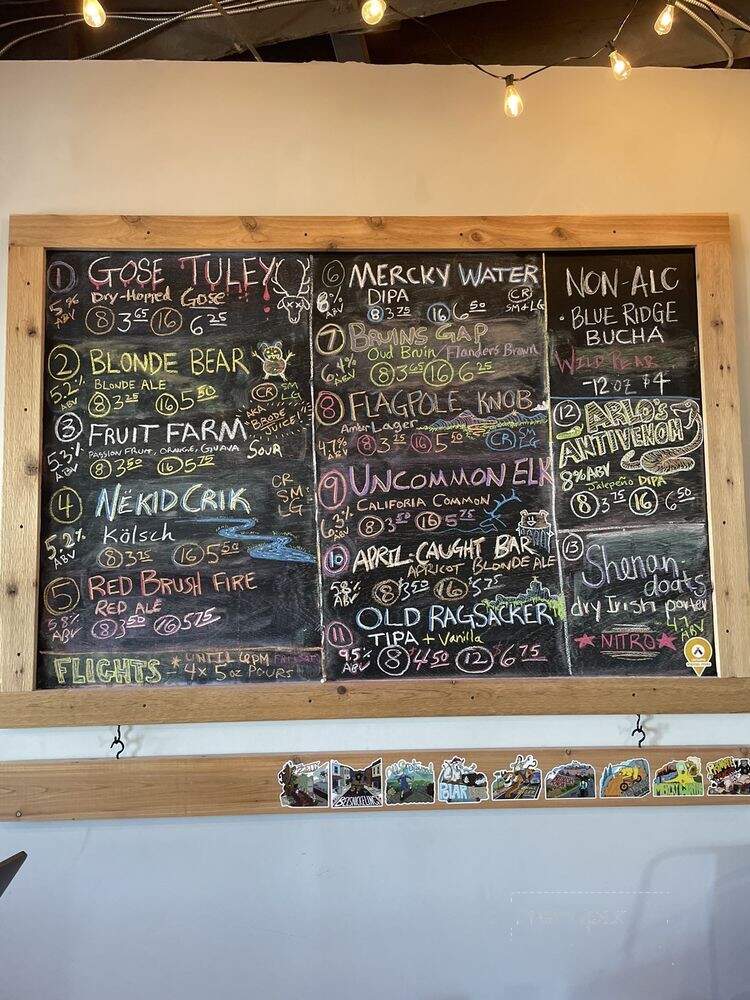 1 GOSE TULEY
Dry-Hopped Gose
5% ABV
8 3.65 16 6.25
2 BLONDE BEAR
BLONDE ALE
5.2% ABV
8 3.25 16 5.50
CR SM LG
3 FRUIT FARM
AKA BRODE JUICE!
PASSION FRUIT, ORANGE, GUAVA SOUR
5.3% ABV
8 3.50 16 5.75
4 NËKID CRIK
CR SM LG
Kölsch
5.2% ABV
8 3.25 16 5.50
5 RED BRUSH FIRE
RED ALE
5.8% ABV
8 3.50 16 5.75
FLIGHTS * UNTIL 6PM FRI+SAT
- 4x 5oz POURS
6 MERCKY WATER
DIPA
8% ABV
8 3.75 16 6.50
CR SM+LG
7 BRUINS GAP
Oud Bruin / Flanders Brown
6.4% ABV
8 3.65 16 6.25
8 FLAGPOLE KNOB
Amber Lager
4.7% ABV
8 3.25 16 5.50
CR SM LG
9 UNCOMMON ELK
CALIFORIA COMMON
8 3.50 16 5.75
10 APRIL-CAUGHT BAR
APRICOT BLONDE ALE
5.8% ABV
8 $3.50 16 $5.75
11 OLD RAGSACKER
TIPA + Vanilla
9.5% ABV
8 $4.50 12 $6.75
NON-ALC
• BLUE RIDGE
BUCHA
WILD PEAR
-12 oz $4
12 ARLO'S
ANTIVENOM
8% ABV
Jalepeño DIPA
8 3.75 16 6.50
13 Shenan
doats
dry Irish porter
4.7% ABV
NITRO